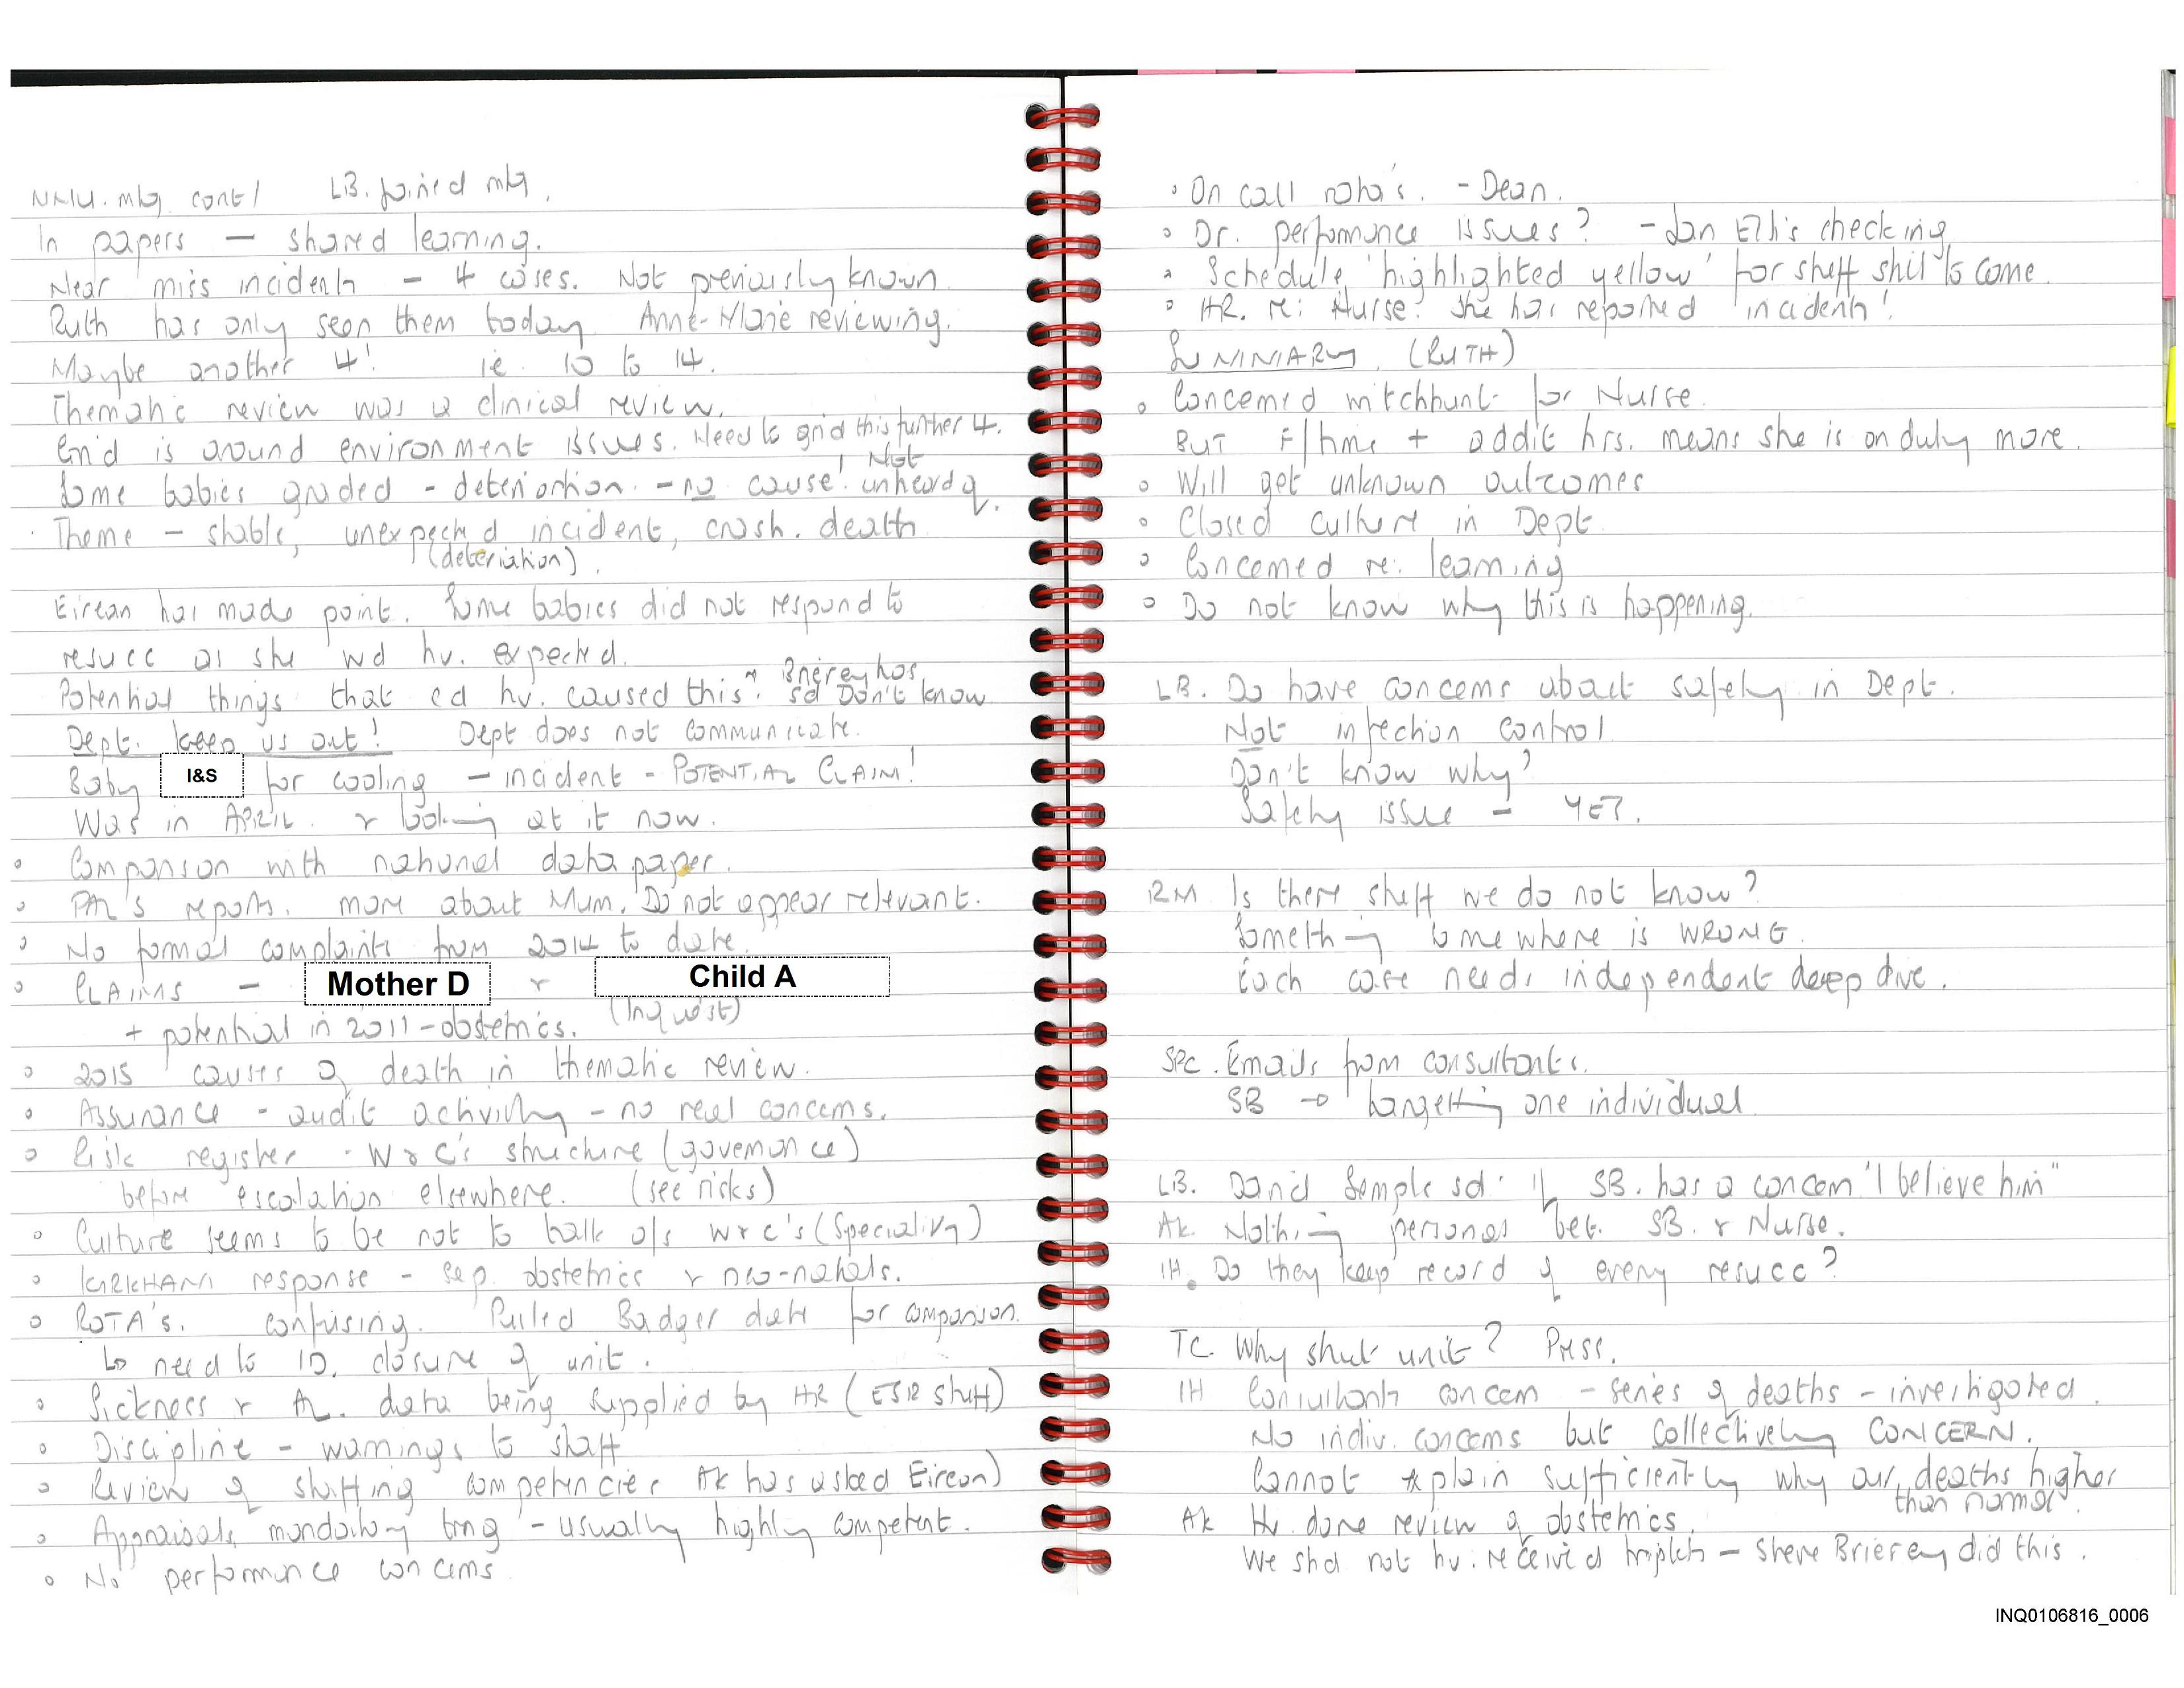 NNU. mtg. cont/ LB. joined mtg.
In papers – shared learning.
Near miss incidents – 4 cases. Not previously known
Ruth has only seen them today Anne-Marie reviewing.
Maybe another 4! ie. 10 to 14.
Thematic review was a clinical review.
Grid is around environment issues. Need to grid this further 4.
Some babies graded – deteriortion. – no cause! Not unheard of.
Theme – stable, unexpected incident, crash. death
(deteriation).
Eirean has made point. Some babies did not respond to
resucc as she wd hv. expected.
Potential things that cd hv. caused this". Brierey has sd Don't know
Dept. keep us out! Dept does not communicate.
Baby I&S for cooling – incident – POTENTIAL CLAIM!
Was in APRIL. & looking at it now.
• Comparison with national data paper.
• PM's reports. more about Mum. Do not appear relevant.
• No formal complaints from 2014 to date.
• CLAIMS – Mother D & Child A
(Inquest)
+ potential in 2011 – obstetrics.
• 2015 causes of death in thematic review.
• Assurance – audit activity – no real concerns.
• Risk register – W & C's structure (governance)
before escalation elsewhere. (see risks)
• Culture seems to be not to talk o/s W & C's (Speciality)
• KIRKHAM response – sep. obstetrics & neo-natals.
• ROTA'S. confusing. Pulled Badger data for comparison.
↳ need to ID. closure of unit.
• Sickness & AL. data being supplied by HR (ESR stuff)
• Discipline – warnings to staff
• Review of shifting competencies AK has asked Eirean)
• Appraisals, mandatory trng – usually highly competent.
• No performance concerns
• On call rota's. – Dean.
• Dr. performance issues? – Jan Ellis checking
• Schedule 'highlighted yellow' for stuff still to come.
• HR. re: Nurse? She has reported incidents!
SUMMARY (RUTH)
• Concerned witchhunt for Nurse.
BUT F/time + addit hrs. means she is on duty more.
• Will get unknown outcomes
• Closed culture in Dept.
• Concerned re: learning
• Do not know why this is happening.
LB. Do have concerns about safety in Dept.
Not infection control
Don't know why?
Safety issue – YES.
RM. Is there stuff we do not know?
Something somewhere is WRONG.
Each case needs independent deep dive.
SPC. Emails from consultants.
SB → targetting one individual
LB. David Semple sd. if SB. has a concern "I believe him"
AK. Nothing personal bet. SB. & Nurse.
IH. Do they keep record of every resucc?
TC. Why shut unit? Press.
IH Consultants concern – series of deaths – investigated.
No indiv. concerns but collectively CONCERN.
Cannot explain sufficiently why our deaths higher
than normal.
AK Hv. done review of obstetrics.
We shd not hv. received triplets – Steve Brierey did this.
INQ0106816_0006